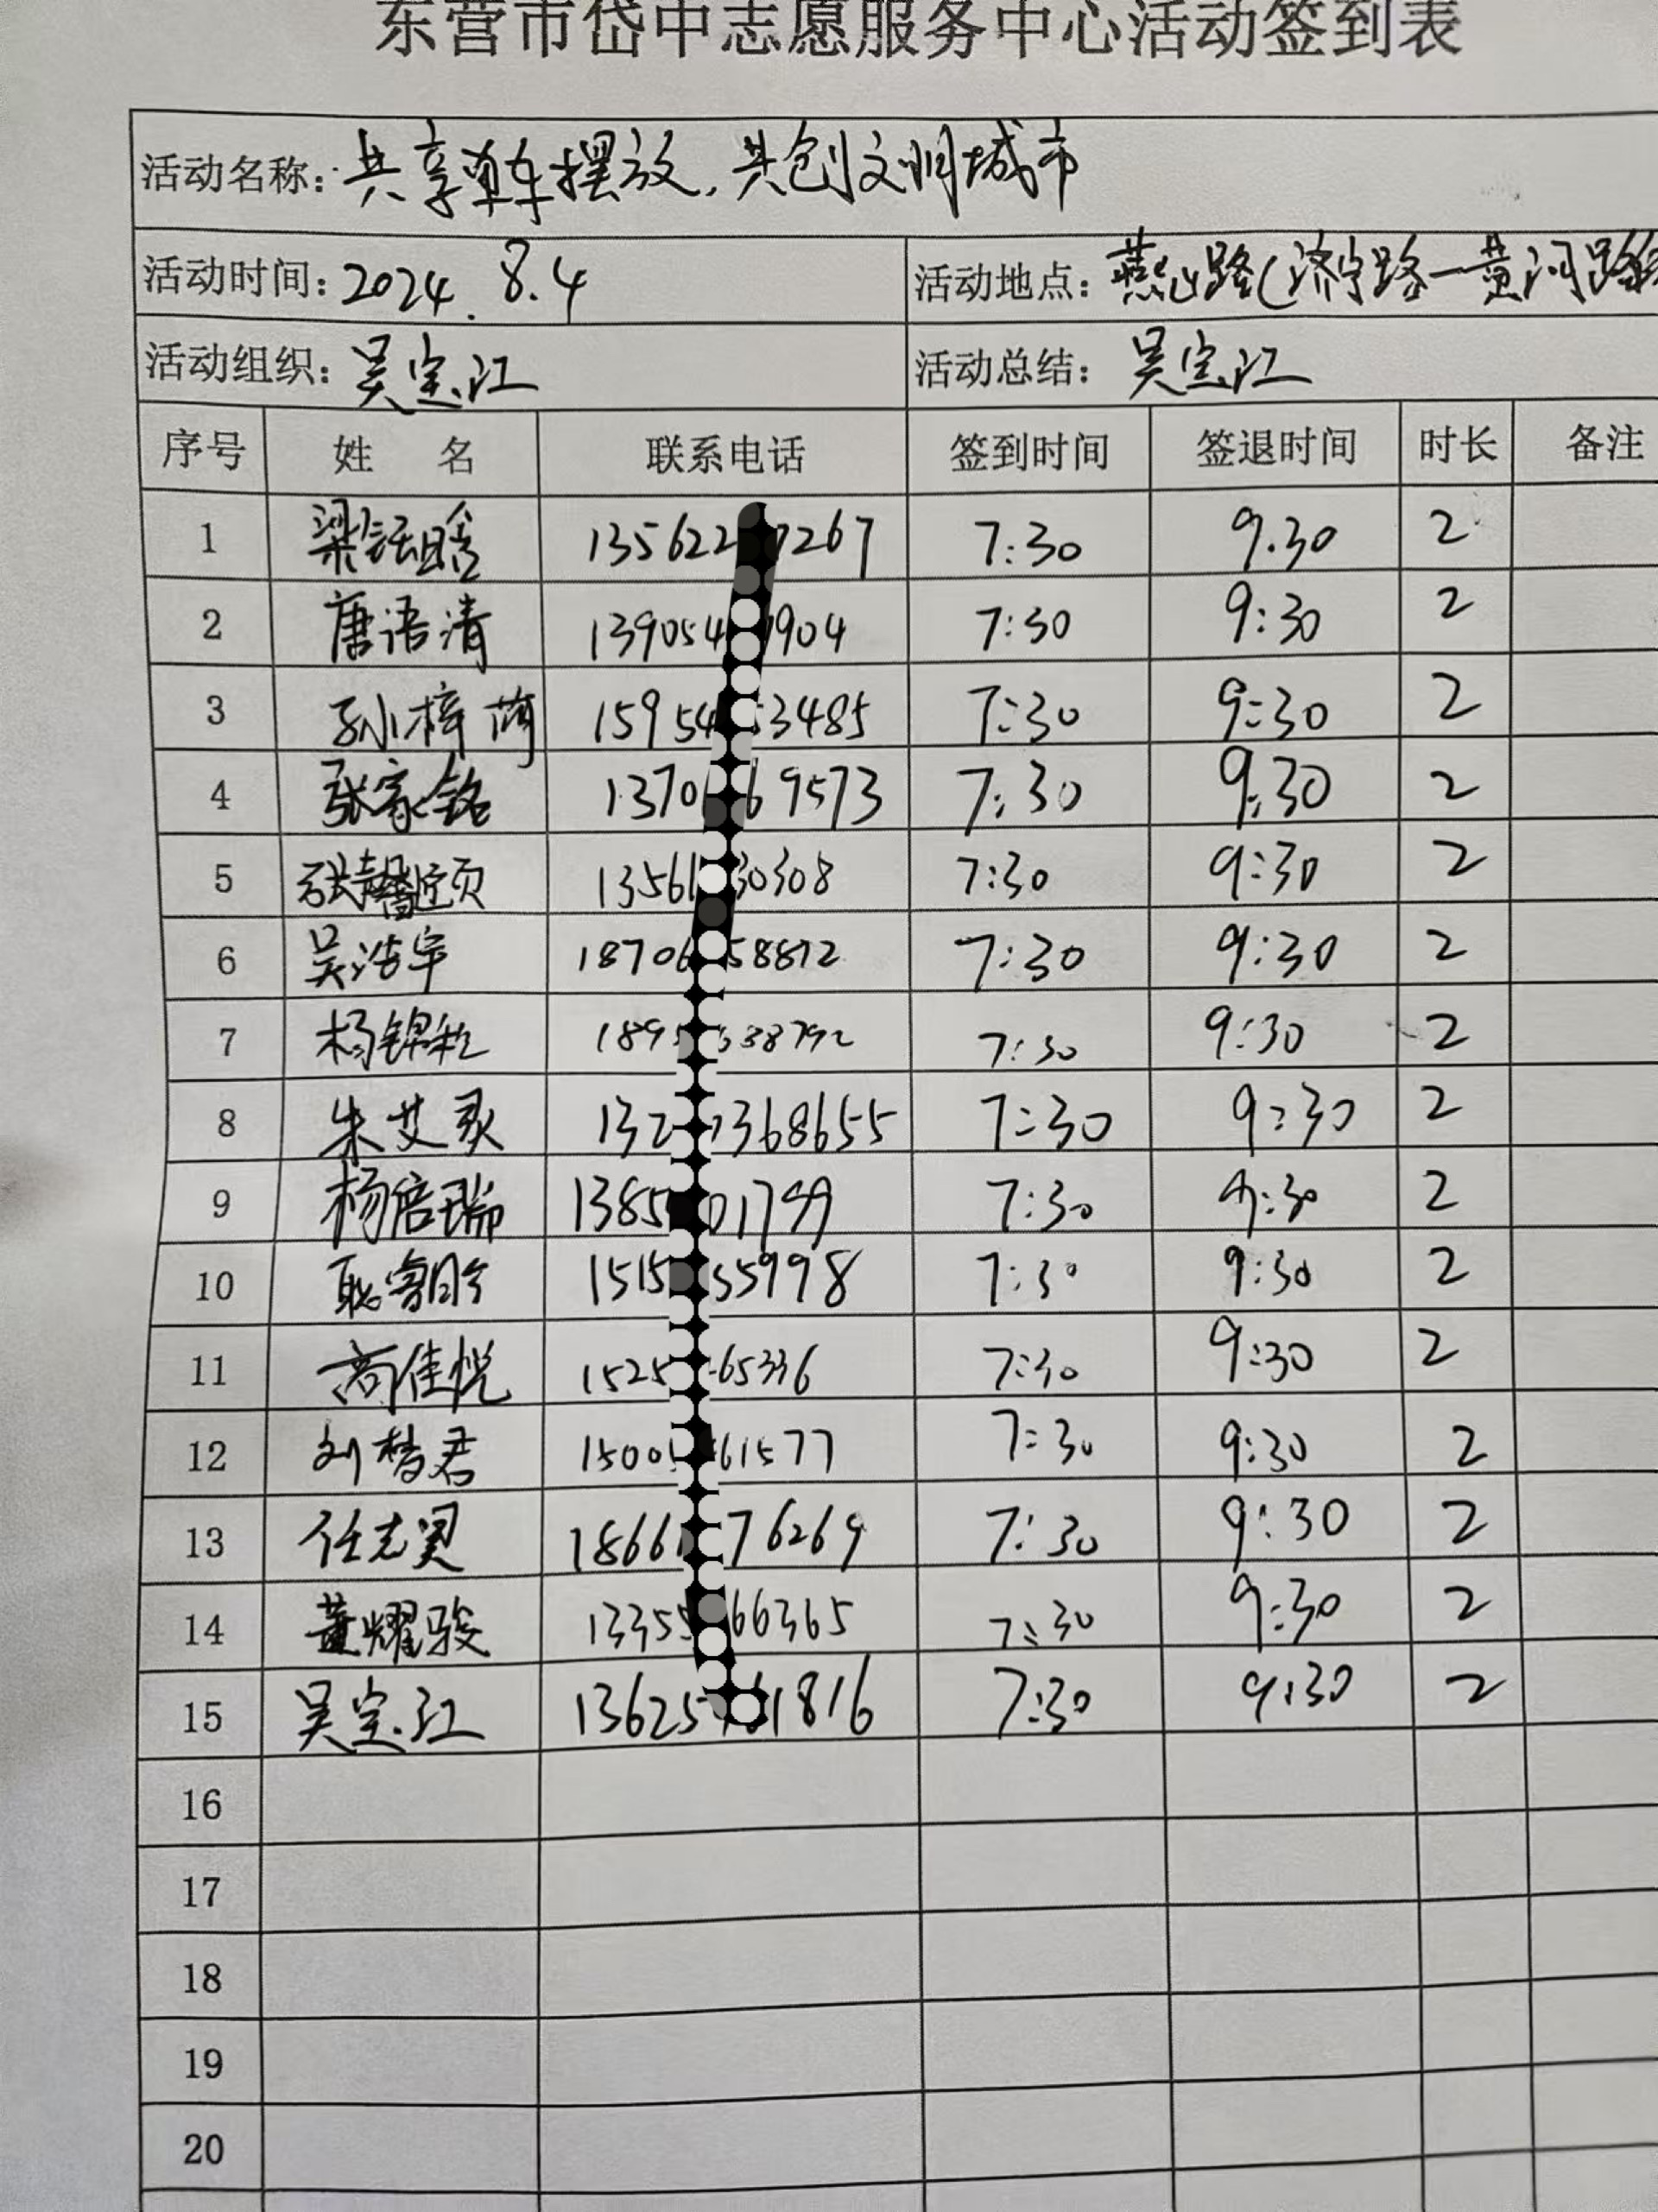 东营市岱中志愿服务中心活动签到表
活动名称：共享单车摆放，共创文明城市
活动时间：2024.8.4 活动地点：燕山路(济宁路一黄河路
活动组织：吴宝江 活动总结：吴宝江
序号 姓 名 联系电话 签到时间 签退时间 时长 备注
1 梁钰晗 135622 7267 7:30 9.30 2
2 唐语清 139054 904 7:30 9:30 2
3 孙梓萌 15954 53485 7:30 9:30 2
4 张家铭 1370 69573 7:30 9:30 2
5 张馨 13561 30308 7:30 9:30 2
6 吴浩宇 18706 58812 7:30 9:30 2
7 杨锦 189 38792 7:30 9:30 2
8 朱艾灵 132 368655 7:30 9:30 2
9 杨倍瑞 1385 01749 7:30 9:30 2
10 1515 55998 7:30 9:30 2
11 商佳悦 1525 65336 7:30 9:30 2
12 刘梦君 1500 61577 7:30 9:30 2
13 任志 1866 76269 7:30 9:30 2
14 董耀骏 1335 66365 7:30 9:30 2
15 吴宝江 13625 1816 7:30 9:30 2
16
17
18
19
20